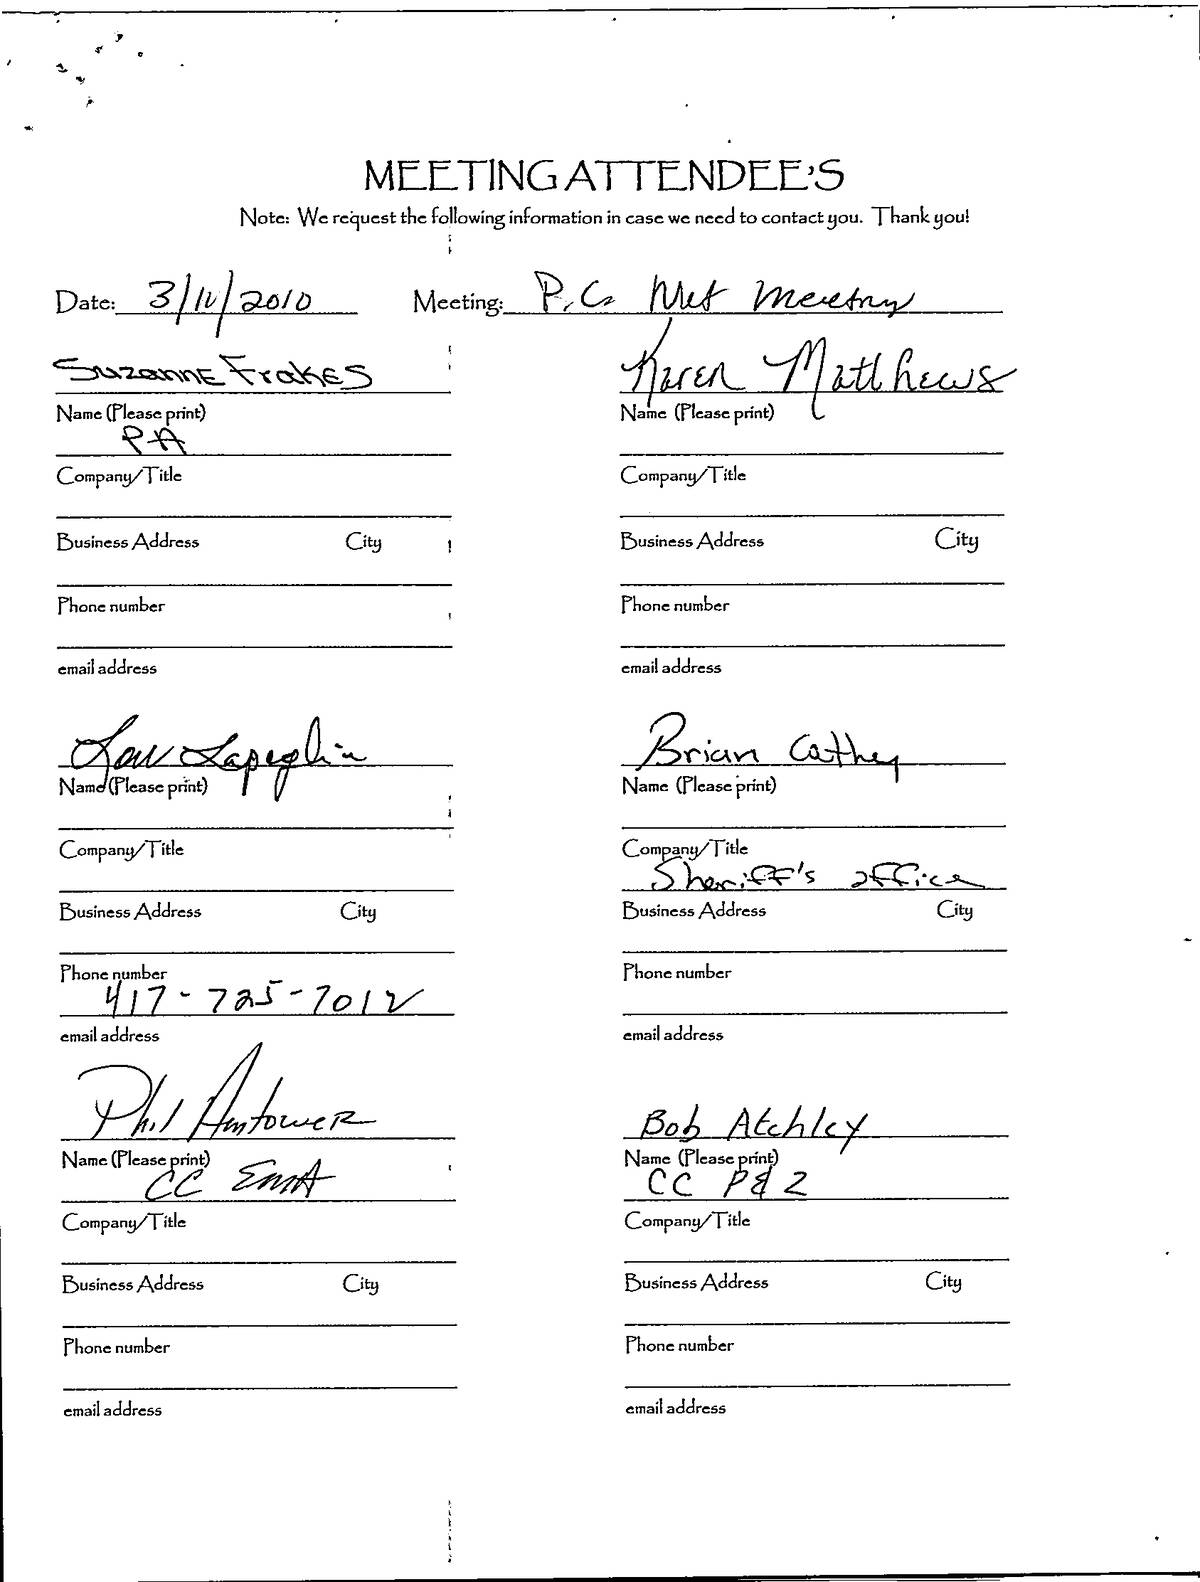 MEETING ATTENDEE'S
Note: We request the following information in case we need to contact you. Thank you!
Date: 3/12/2010 Meeting: P.C. Met Meeting
Suzanne Frakes Karen Matthews
Name (Please print) Name (Please print)
PA
Company/Title Company/Title
Business Address City Business Address City
Phone number Phone number
email address email address
Brian Cathey
Name (Please print) Name (Please print)
Company/Title Company/Title
Sheriff's office
Business Address City Business Address City
Phone number Phone number
417-725-7012
email address email address
Phil Bob Atchley
Name (Please print) Name (Please print)
CC EMA CC P&Z
Company/Title Company/Title
Business Address City Business Address City
Phone number Phone number
email address email address